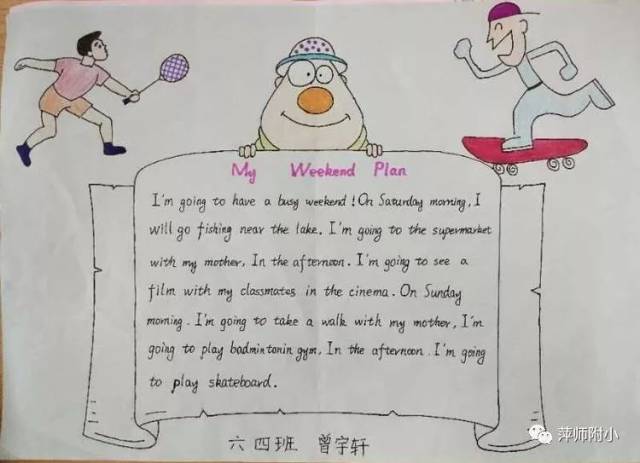 My Weekend Plan
I'm going to have a busy weekend! On Saturday morning, I
will go fishing near the lake. I'm going to the supermarket
with my mother, In the afternoon. I'm going to see a
film with my classmates in the cinema. On Sunday
morning. I'm going to take a walk with my mother, I'm
going to play badmintonin gym, In the afternoon. I'm going
to play skateboard.
六四班 曾宇轩
萍师附小